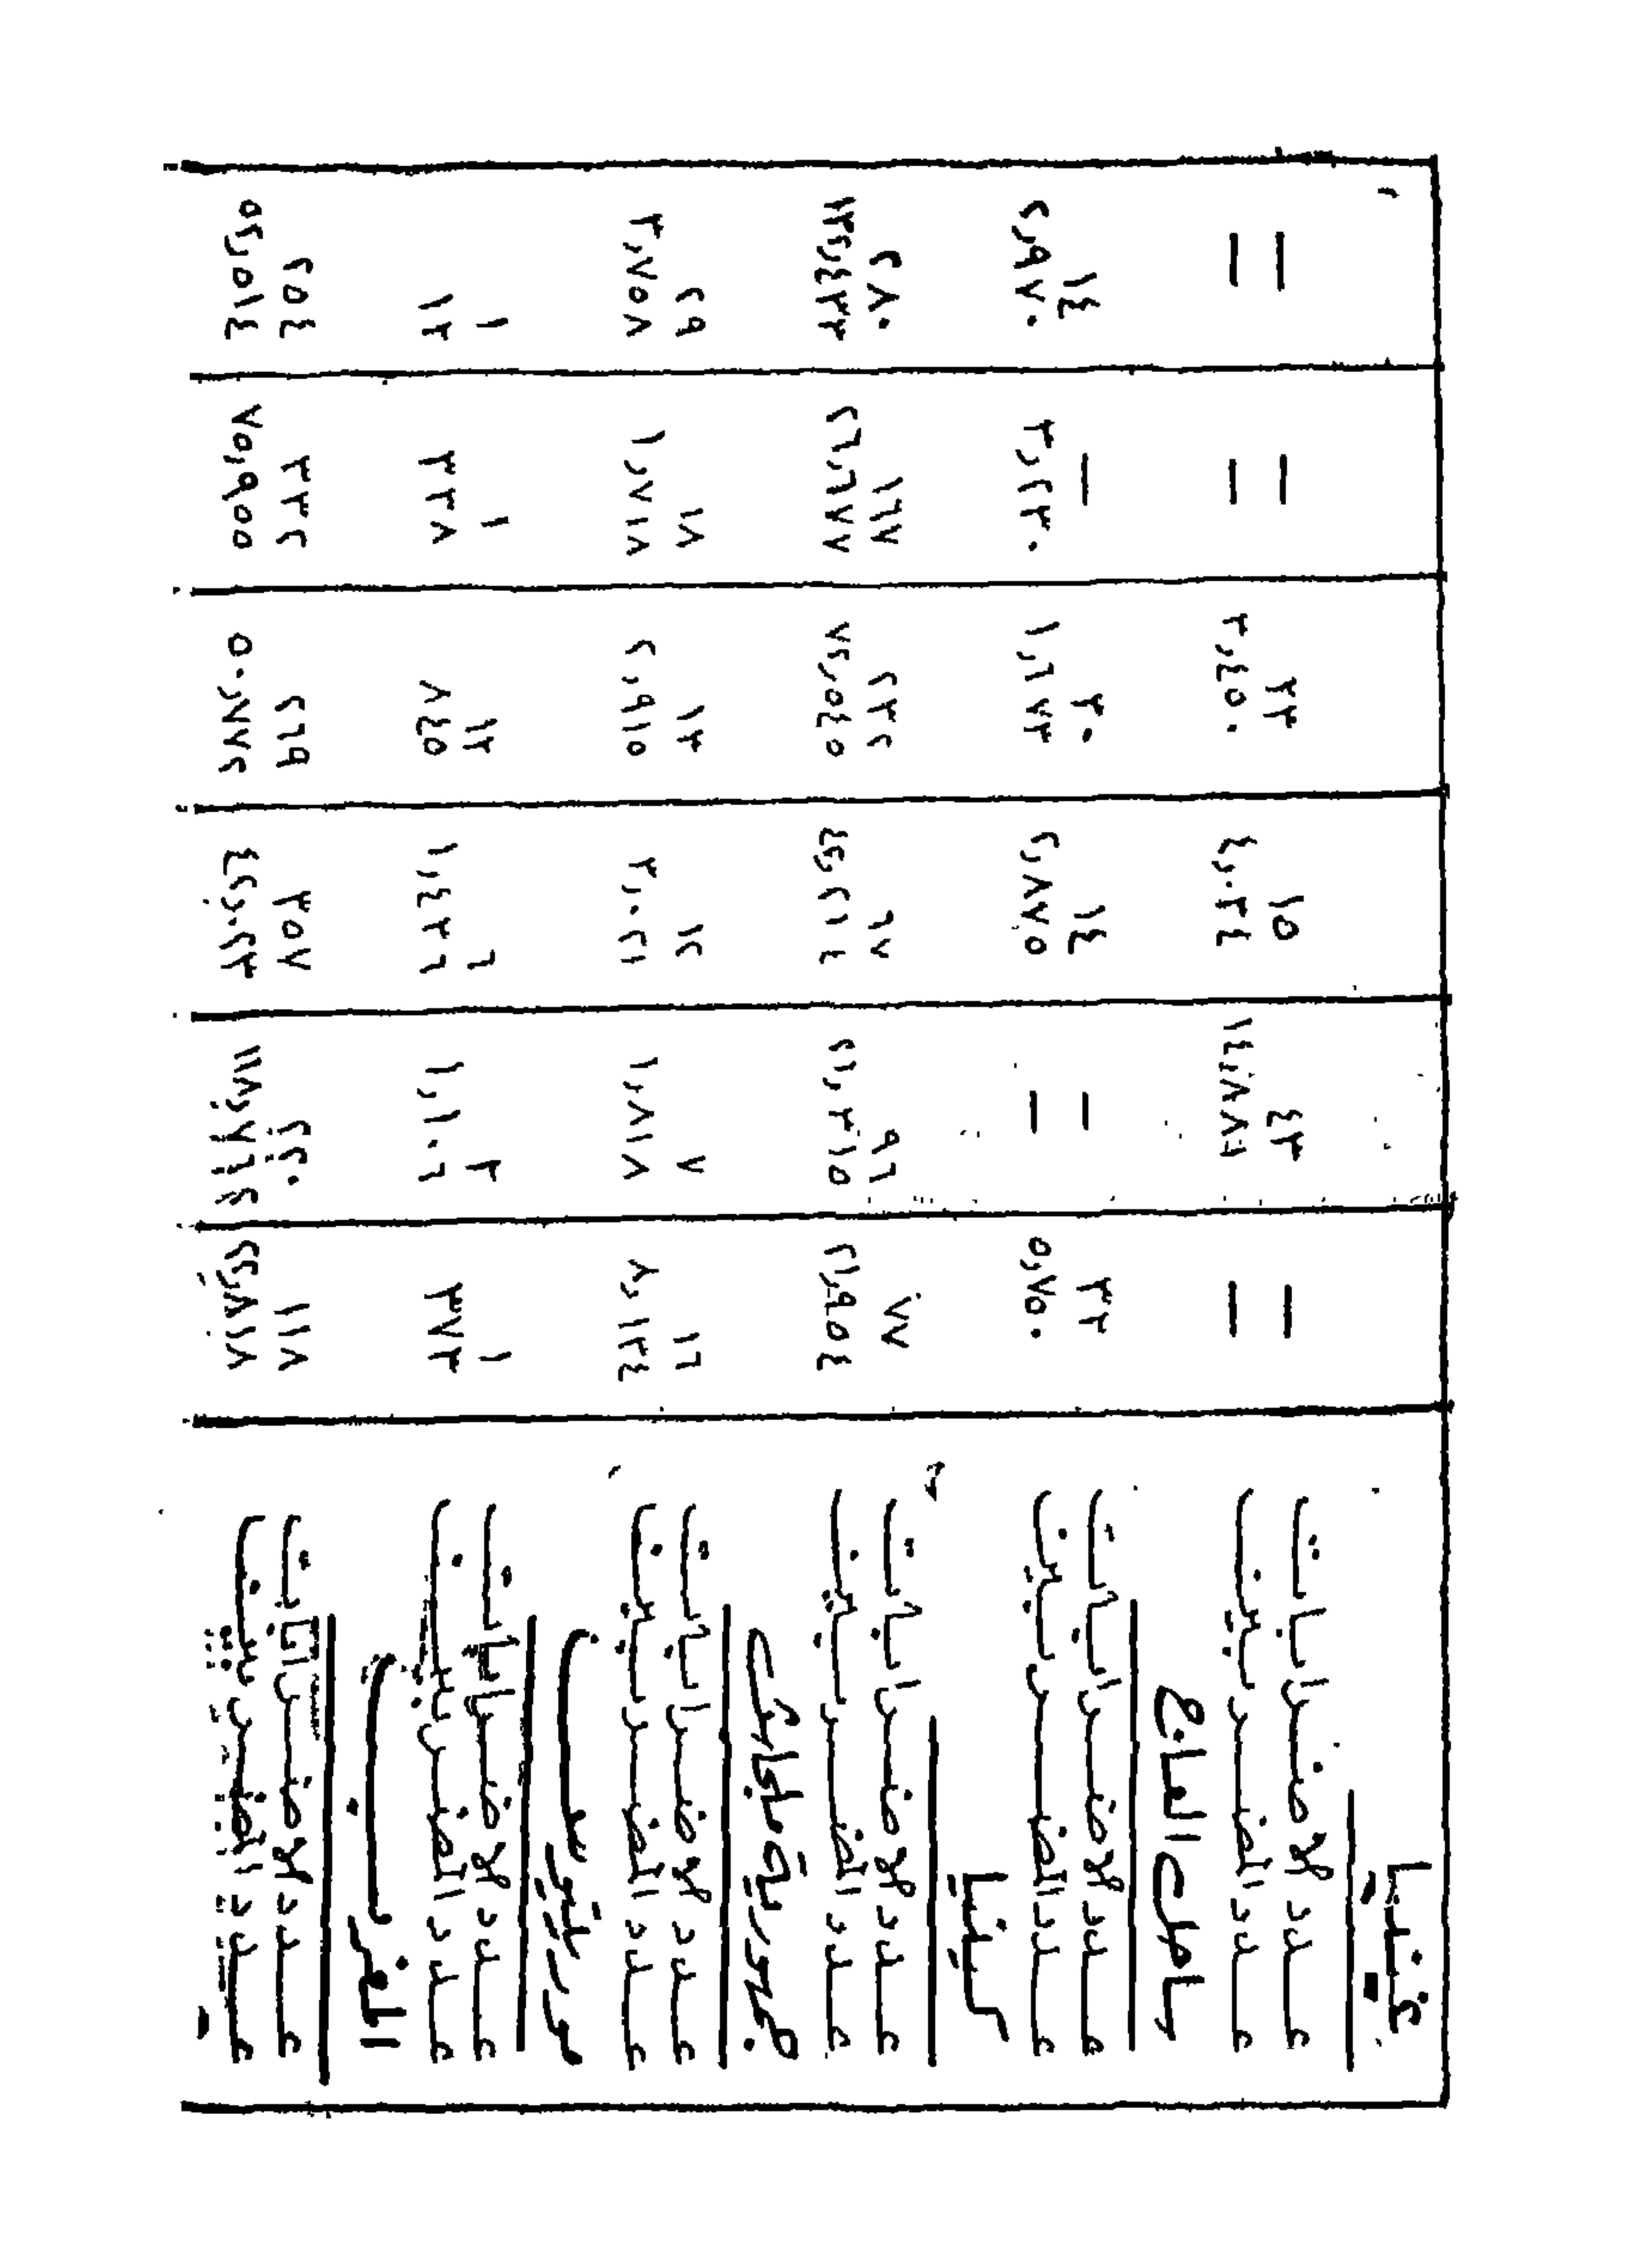 غينيا
عدد الاضرابات — ٤٣ ١٥ ٣٣ — —
عدد المضربين — ١٤,٨٨٤ ٤,٠٣٤ ٣,٤٥٠ — —
ساحل العاج
عدد الاضرابات ٣٢ — ١٤ ٣٠ — ١٤
عدد المضربين ٥,٧٥٠ — ٢,٨٧٥ ١,٦٧٣ ٣,٢٣٠ ٢,٩٧٠
كينيا
عدد الاضرابات ٧٧ ٩٦ ٦٧ ٢٣٢ ١٦٧ ٢٨٠
عدد المضربين ٢١,٩٥٤ ٢١,٣١٥ ٤٢,٢١٤ ٧٢,٥٤٥ ٢٦,٦٧٧ ١٣٢,٤٣٣
جمهورية ملجاش
عدد الاضرابات ١٦ ٧ ١٢ ١٣ ١٨ ٢٩
عدد المضربين ٨,١٣٤ ١,٨١٨ ٣,٠٢١ ٢,٩١٥ ١,٧١٨ ٣,٧٥٨
موريتوس
عدد الاضرابات ١ ٣ ٦ ١٣ ١ ١
عدد المضربين ٣٧٣ ١,١٠٦ ١,٤٣٦ ٨٤٥ ٣٣٨ ١٣
المغرب
عدد الاضرابات ١١٨ ٢٢٠ ٣٥٧ ٢٦٩ ٣٣٢ ٢٥٤
عدد المضربين ٢٢,٨١٨ ٤٢,٠٢٣ ٥٠,٧٧٢ ٧٥,٩٥٥ ٥٢,٥١٤